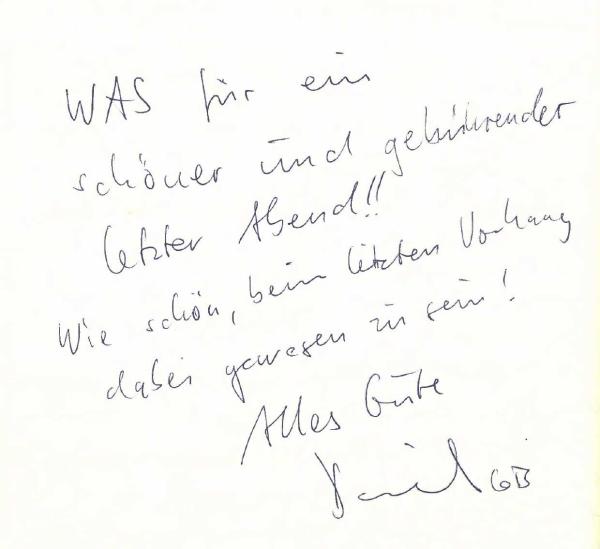 WAS für ein
schöner und gebührender
letzter Abend!!
Wie schön, beim letzten Vorhang
dabei gewesen zu sein!
Alles Gute
Daniel GB